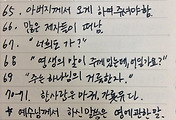 65. 아버지께서 오게 하여주셔야함.
66. 많은 제자들이 떠남.
67. "너희도 가?"
68. "영생의 말이 주께있는데, 어딜가요?"
69. "주는 하나님의 거룩한자."
70-71. 한사람은 마귀, 가룟유다.
* 예수님께서 하신말씀은 영에관한말.